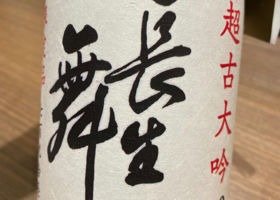 超古大吟
長生
舞